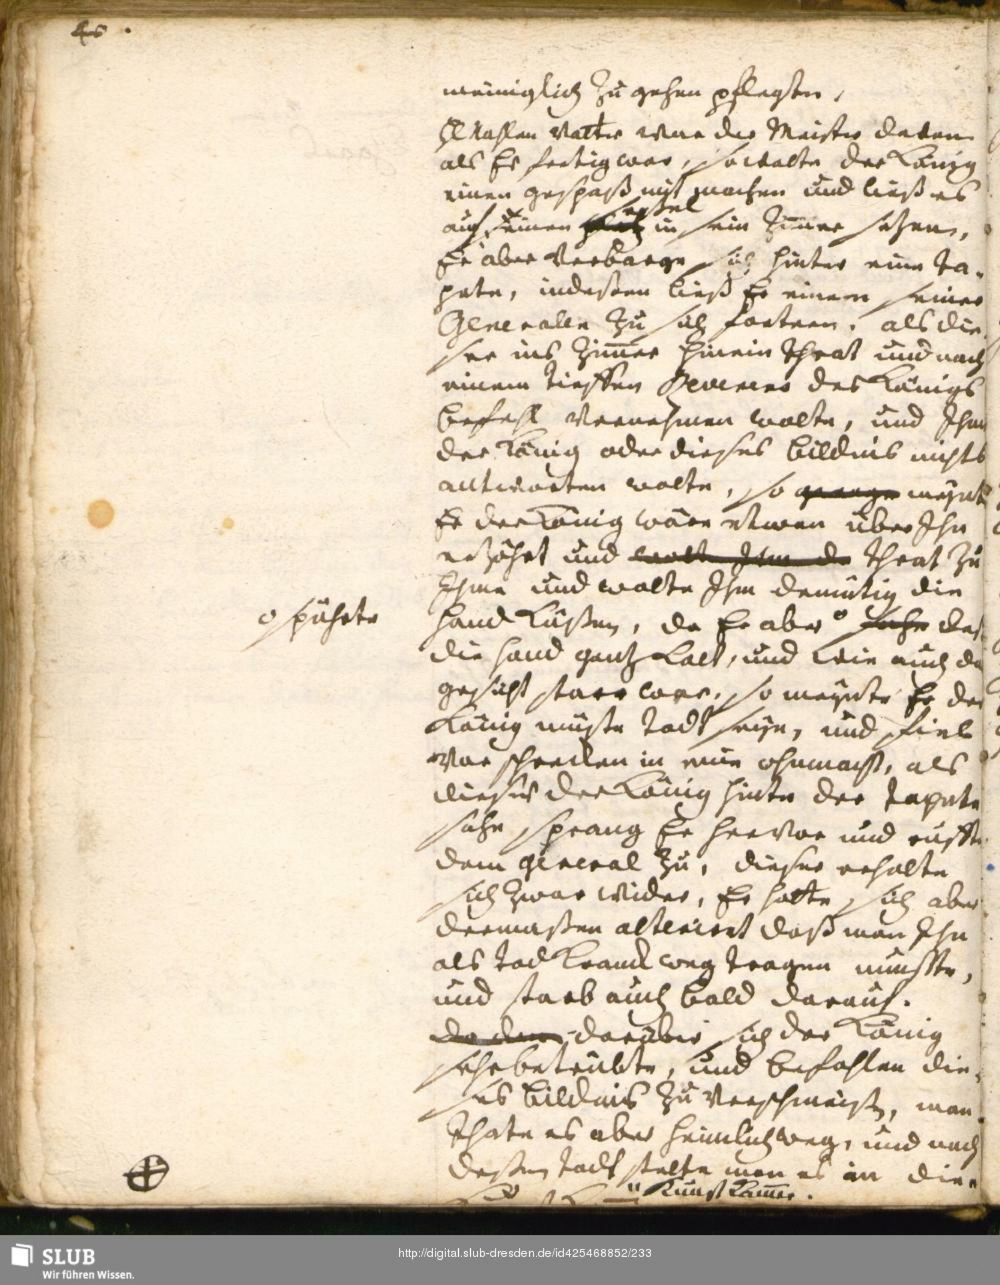 meiniglich zu gehen pflegten,
Mahlen Vatter war der Meister davon
als Er fertig war, so wolte der König
einen gespaß mit machen und ließ es
auf seinen sessel in sein Zimer setzen,
Er aber Verbarge sich hinter eine ta-
pete, indessen ließ Er einem seiner
Generalen zu sich fortern, als die-
ser ins Zimer hinein that und nach
einem tieffen Reverens des Königs
befehl vernehmen wolte, und Ihm
der König oder dieses bildnis nichts
antworten wolte, so meynte
Er der König wäre etwan über Ihn
erzöhrt und that zu
Ihme und wolte Ihm demütig die
hand Küßen, da Er aber o das
o spührte
die hand gantz Kalt, und wie auch das
gesicht starr ware, so meynte Er der
König müste todt seyn, und fiel
vor schrecken in eine ohnmacht, als
dieses der König hinter der tapete
sahe, sprang Er hervor und ruffte
dem General zu, dieser erholte
sich zwar wider, Er hatte sich aber
dermaßen alterirt daß man Ihn
als tod Krank weg tragen muste,
und starb auch bald darauf.
darüber sich der König
sehr betrübte, und befahlen die-
ses bildnis zu verschmeißen, man
thate es aber heimlich weg, und nach
deßen todt stelte man es in die
Kunst Kamer.
SLUB
Wir führen Wissen.
http://digital.slub-dresden.de/id425468852/233